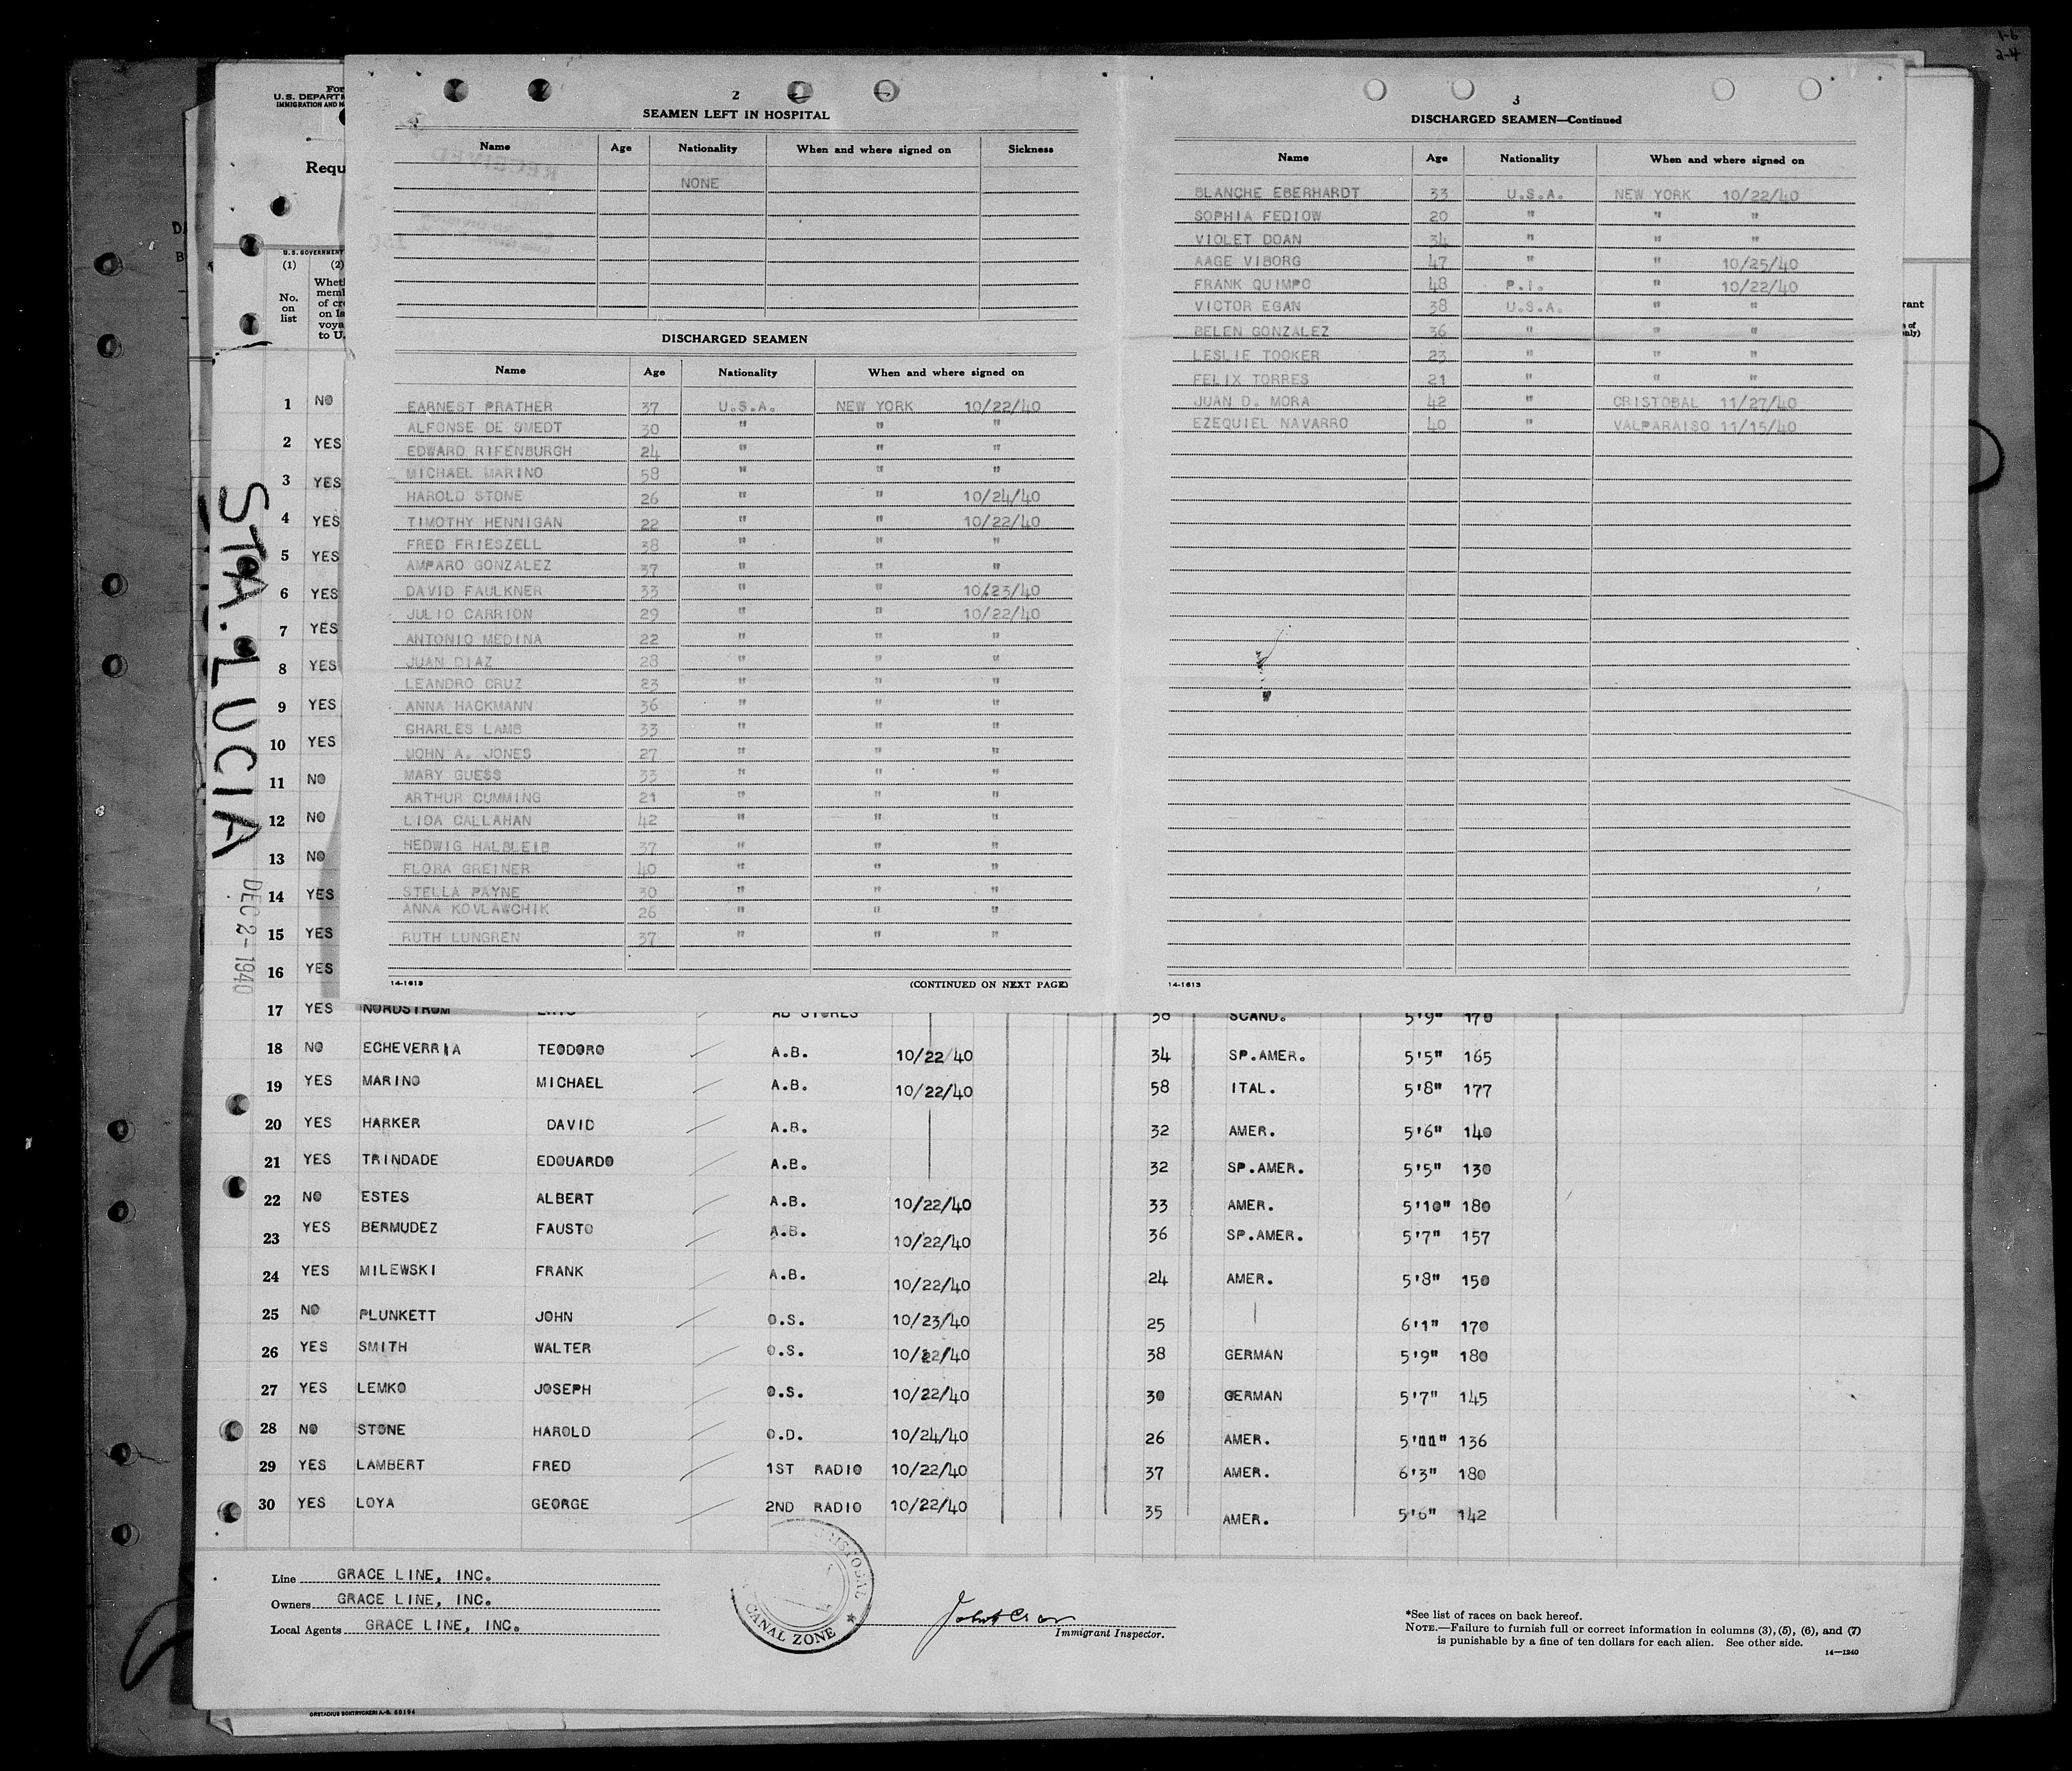 1-6
2-4
2
SEAMEN LEFT IN HOSPITAL
Name Age Nationality When and where signed on Sickness
NONE
DISCHARGED SEAMEN
Name Age Nationality When and where signed on
EARNEST PRATHER 37 U.S.A. NEW YORK 10/22/40
ALFONSE DE SMEDT 30 " " "
EDWARD RIFENBURGH 24 " " "
MICHAEL MARINO 58 " " "
HAROLD STONE 26 " " 10/24/40
TIMOTHY HENNIGAN 22 " " 10/22/40
FRED FRIESZELL 38 " " "
AMPARO GONZALEZ 37 " " "
DAVID FAULKNER 33 " " 10/23/40
JULIO CARRION 29 " " 10/22/40
ANTONIO MEDINA 22 " " "
JUAN DIAZ 28 " " "
LEANDRO CRUZ 23 " " "
ANNA HACKMANN 36 " " "
CHARLES LAMB 33 " " "
JOHN A. JONES 27 " " "
MARY GUESS 33 " " "
ARTHUR CUMMING 21 " " "
LIDA CALLAHAN 42 " " "
HEDWIG HALBLEIB 37 " " "
FLORA GREINER 40 " " "
STELLA PAYNE 30 " " "
ANNA KOVLAWCHIK 26 " " "
RUTH LUNGREN 37 " " "
14-1613 (CONTINUED ON NEXT PAGE)
3
DISCHARGED SEAMEN—Continued
Name Age Nationality When and where signed on
BLANCHE EBERHARDT 33 U.S.A. NEW YORK 10/22/40
SOPHIA FEDIOW 20 " " "
VIOLET DOAN 34 " " "
AAGE VIBORG 47 " " 10/25/40
FRANK QUIMPO 48 P.I. " 10/22/40
VICTOR EGAN 38 U.S.A. " "
BELEN GONZALEZ 36 " " "
LESLIE TOOKER 23 " " "
FELIX TORRES 21 " " "
JUAN D. MORA 42 " CRISTOBAL 11/27/40
EZEQUIEL NAVARRO 40 " VALPARAISO 11/15/40
14-1613
For
U.S. DEPART
IMMIGRATION AND N
Requ
U.S. GOVERNMENT
(1) (2)
No. on list
Whet
memb
of cre
on la
voya
to U.
STA. LUCIA
DEC 2- 1940
1 NO
2 YES
3 YES
4 YES
5 YES
6 YES
7 YES
8 YES
9 YES
10 YES
11 NO
12 NO
13 NO
14 YES
15 YES
16 YES
17 YES NORDSTROM AB STORES 38 SCAND. 5'9" 170
18 NO ECHEVERRIA TEODORO A.B. 10/22/40 34 SP.AMER. 5'5" 165
19 YES MARINO MICHAEL A.B. 10/22/40 58 ITAL. 5'8" 177
20 YES HARKER DAVID A.B. 32 AMER. 5'6" 140
21 YES TRINDADE EDOUARDO A.B. 32 SP.AMER. 5'5" 130
22 NO ESTES ALBERT A.B. 10/22/40 33 AMER. 5'10" 180
23 YES BERMUDEZ FAUSTO A.B. 10/22/40 36 SP.AMER. 5'7" 157
24 YES MILEWSKI FRANK A.B. 10/22/40 24 AMER. 5'8" 150
25 NO PLUNKETT JOHN O.S. 10/23/40 25 6'1" 170
26 YES SMITH WALTER O.S. 10/22/40 38 GERMAN 5'9" 180
27 YES LEMKO JOSEPH O.S. 10/22/40 30 GERMAN 5'7" 145
28 NO STONE HAROLD O.D. 10/24/40 26 AMER. 5'11" 136
29 YES LAMBERT FRED 1ST RADIO 10/22/40 37 AMER. 6'3" 180
30 YES LOYA GEORGE 2ND RADIO 10/22/40 35 AMER. 5'6" 142
Line GRACE LINE, INC.
Owners GRACE LINE, INC.
Local Agents GRACE LINE, INC.
CRISTOBAL
CANAL ZONE
Immigrant Inspector.
*See list of races on back hereof.
NOTE.—Failure to furnish full or correct information in columns (3), (5), (6), and (7)
is punishable by a fine of ten dollars for each alien. See other side.
14-1240